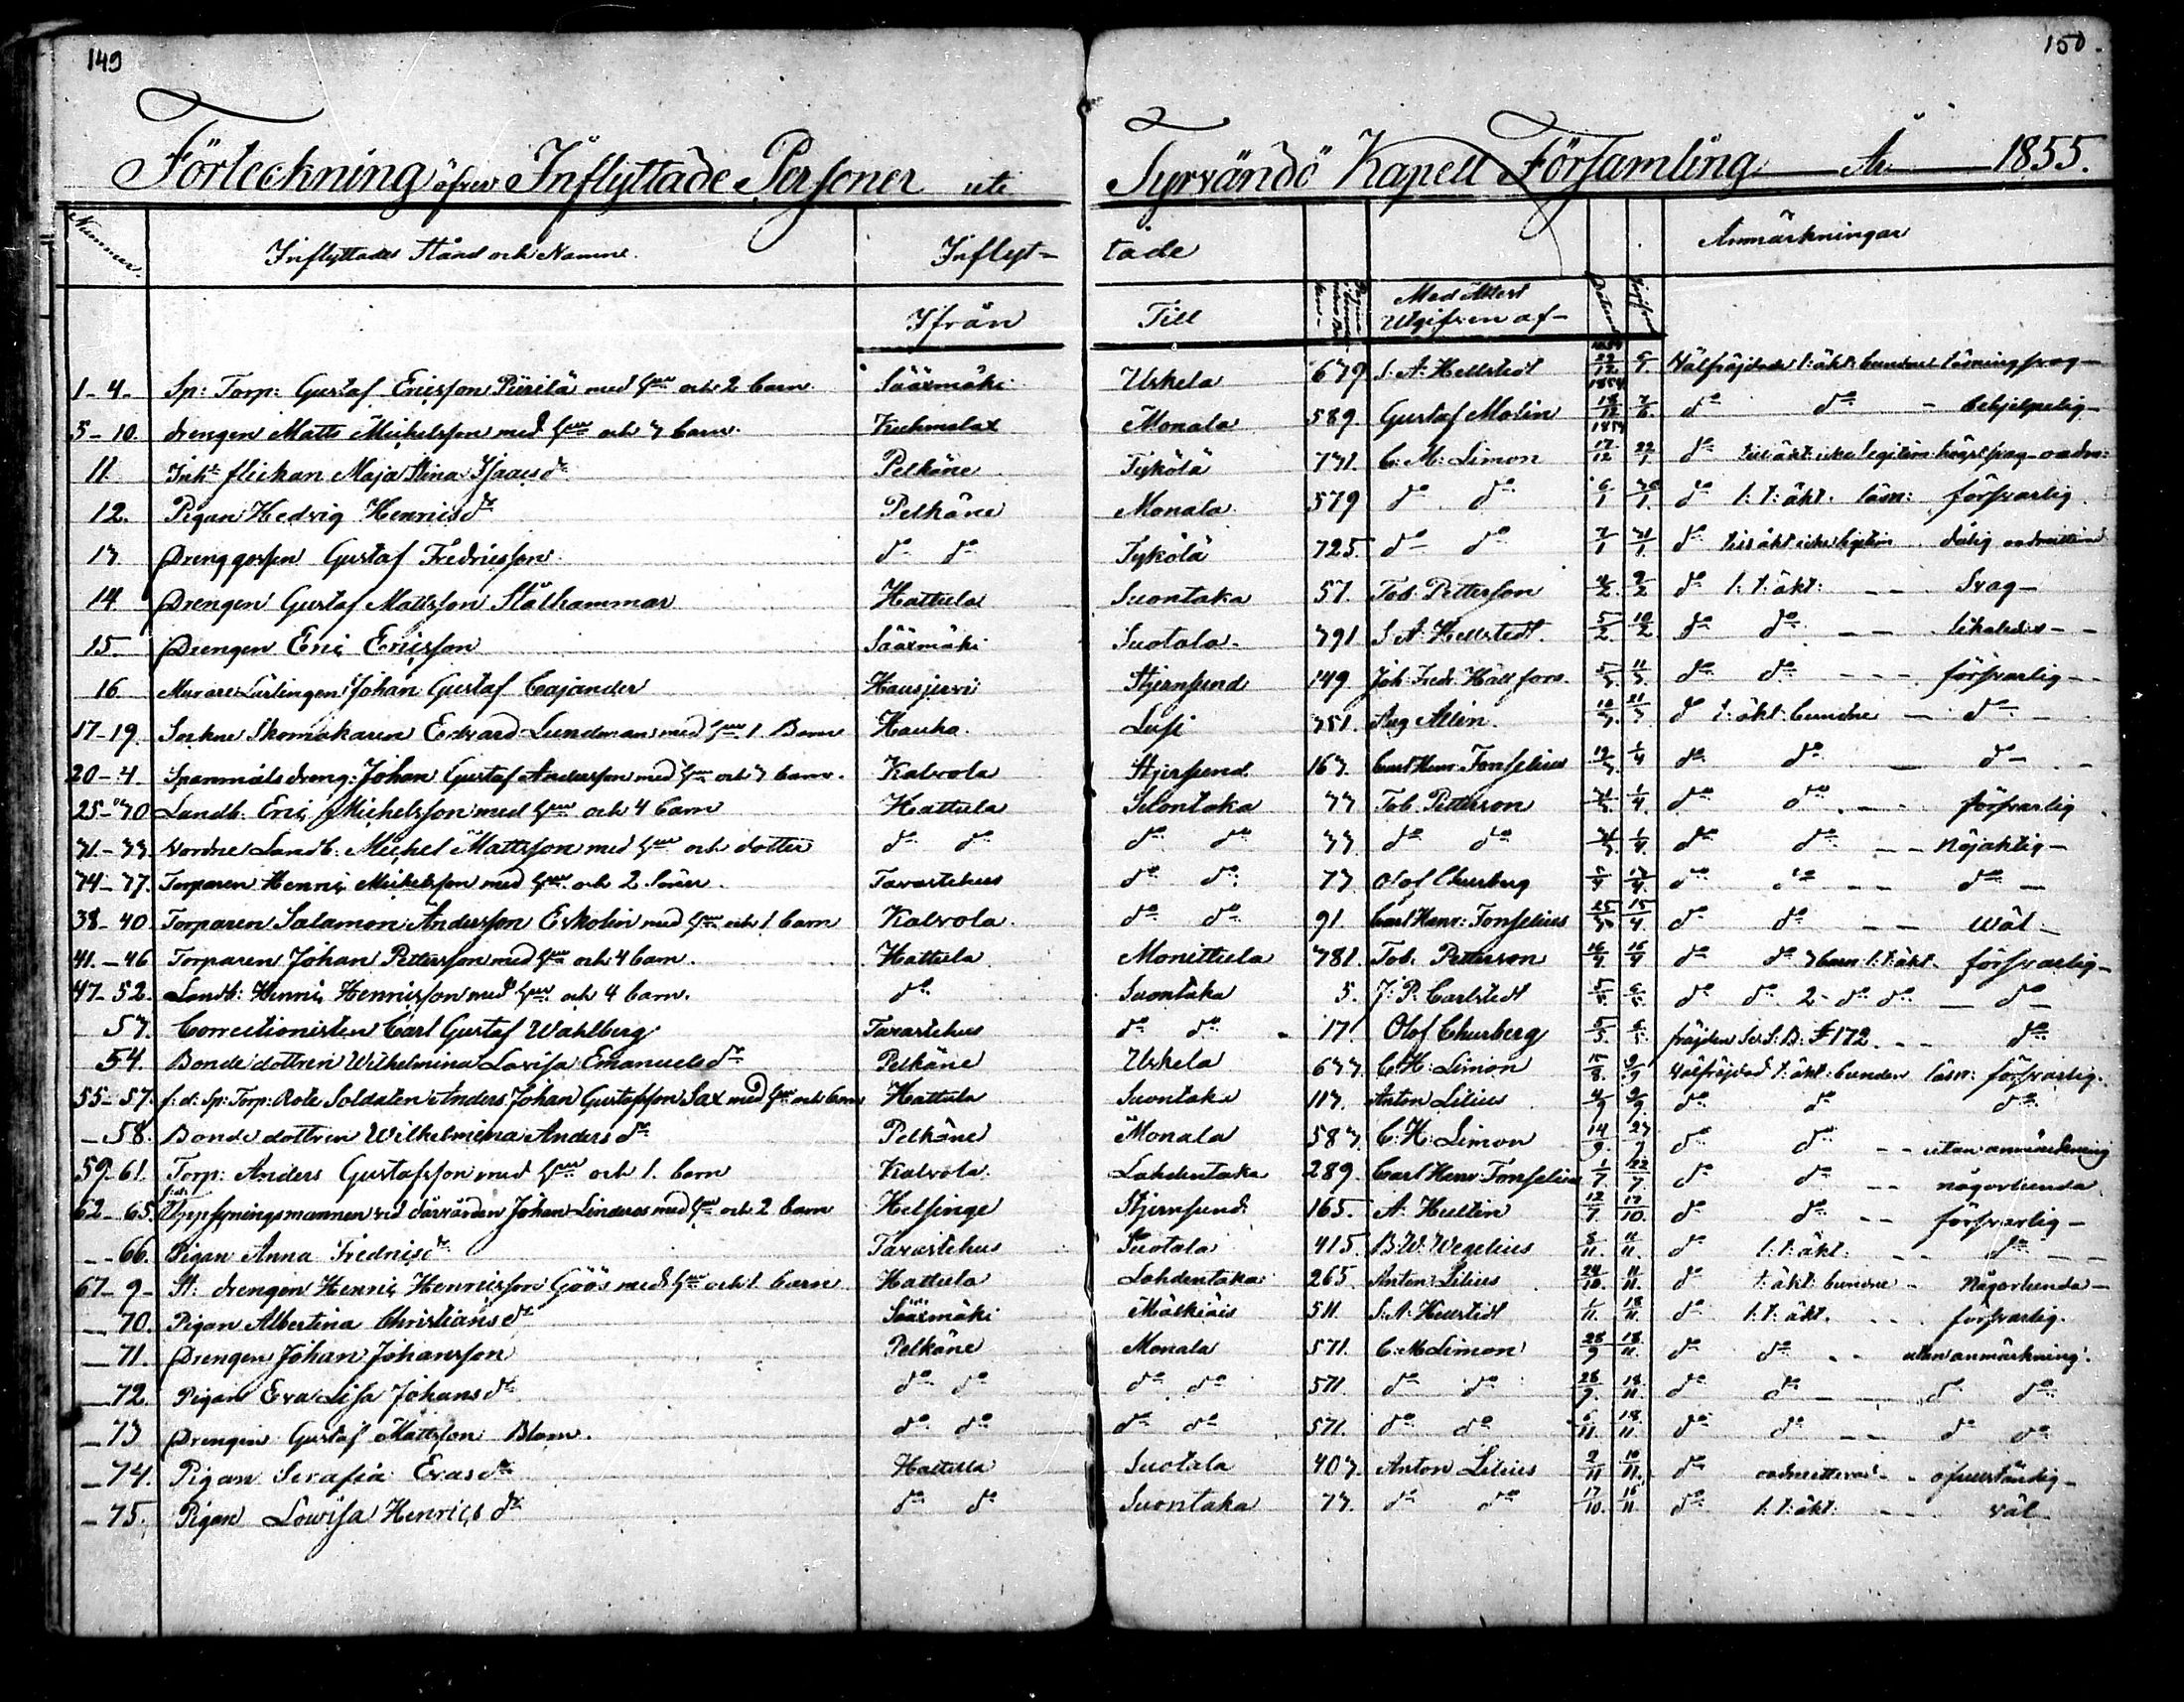 149
150.
Förteckning öfver Inflyttade Personer uti Tyrvändö Kapell Församling År 1855.
Nummer. Inflyttades Stånd och Namn. Inflyt- tade Anmärkningar
Ifrån Till Med Attest Utgifven af-
1-4- Sp: Torp: Gustaf Ericsson Piirilä med hu och 2 barn Sääxmäki Uskela 679 S. A. Hellstedt 1854 22/12 Välfräjdade t: äkt: bundne läsning svag-
5-10. drengen Matts Michelsson med hu och 3 barn. Kuhmalax Monala 589 Gustaf Molin 1854 18/12 do do - behjelpelig-
11. Inh: flickan Maja Stina Isaacs dr Pelkäne Tykölä 731. C: M: Limon 1854 17/12 22/1 do till äkt: icke legitim:
12. Pigan Hedvig Henrics dr Pelkäne Monala 579 do do 6/1 do l: t: äkt. läsn: försvarlig.
13. Drenggossen Gustaf Fredricsson do do Tykölä 325. do do 3/1 31/1 do till äkt icke legitim dålig
14. Drengen Gustaf Mattsson Stålhammar Hattula Suontaka 57. Tob. Petterson 4/2 9/2 do l: t: äkt: -- Svag-
15. Drengen Eric Ericsson Sääxmäki Suotala 391 S. A. Hellstedt. 5/2 10/2 do do -- likaledes--
16 Murare Lärlingen Johan Gustaf Cajander Hausjervi Stjernsund 149 Joh. Fredr. Hällfors. 5/3 11/3 do do --- försvarlig--
17-19. Sockne Skomakaren Edvard Lundman med hu 1 Barn Hauho. Lusi 351. Aug Allin. 10/3 21/3 do t: äkt: bundne - do -
20-4. Spanmåls dreng: Johan Gustaf Andersson med hu och 3 barn. Kalvola Stjersund 163. Carl Henr Tonselius 19/3 1/4 do do - do --
25-30 Landb. Eric Michelsson med hu och 4 barn Hattula Suontaka 33 Tob. Petterson 31/3 1/4. do do -- försvarlig
31-33. Vordne Landb: Michel Mattsson med hu och dotter do do do do 33 do do 31/3. 1/4. do do -- Nöjaktig-
34-37. Torparen Henric Michelsson med hu och 2 Söner. Tavastehus do do 73 Olof Churberg 5/4 13/4. do do -- do -
38-40 Torparen Salamon Andersson Eskolin med hu och 1 barn Kalvola. do do 91. Carl Henr: Tonselius 25/3 15/4. do do -- Wäl-
41.-46 Torparen Johan Pettersson med hu och 4 barn. Hattula Monittula 381. Tob. Petterson 14/4. 16/4 do do 3 barn l: t: äkt. försvarlig-
47-52. Landb: Henric Henricsson med hu och 4 barn. do Suontaka 5. J. P. Carlstedt 5/5 6/5 do do 2- do do - do -
53. Correctionisten Carl Gustaf Wahlberg Tavastehus do do 17. Olof Churberg 5/5. 6/5. fräjden Se S: B: F 172 -- do
54. Bonde dottren Wilhelmina Lovisa Emanuels dr Pelkäne Uskela 633. C: H: Limon 15/8. 2/9 Välfräjdad t: äkt: bunden läsn: försvarlig.
55-57. f: d: Sp: Torp: Rote Soldaten Anders Johan Gustafsson Sax med hu och barn Hattula Suontaka 113. Anton Lilius 4/9 2/9 do do do
-58. Bonde dottren Wilhelmina Anders dr Pelkäne Monala 583. C: H: Limon 14/9. 23/9 do do -- utan anmärkning
59-61. Torp: Anders Gustafsson med hu och 1. barn Kalvola Lahdentaka 289. Carl Henr Tonselius 1/7 22/7 do do -- någorlunda
62-65. f: d: Uppsyningsmannen vid dårvården Johan Linderos med hu och 2 barn Helsinge Stjernsund 165. A: Hultin 12/7. 17/10. do do -- försvarlig-
--66. Pigan Anna Fredrics dr Tavastehus Suotala 415. B. W. Wegelius 8/11. 11/11. do l: t: äkt: -- do --
67-9- St: drengen Henric Henricsson Göös med hu och 1 barn Hattula Lahdentaka 265. Anton Lilius 24/10. 11/11. do t: äkt: bundne - Någorlunda-
-70. Pigan Albertina Christians dr Sääxmäki Mälkiäis 511. S. A. Hellstedt 1/11. 18/11. do l: t: äkt. --- försvarlig.
-71. Drengen Johan Johansson Pelkäne Monala 571. C: M Limon 28/9 18/11. do do -- utan anmärkning.
-72. Pigan Eva Lisa Johans dr do do do do 571 do do 28/9. 18/11. do do -- do do
-73 Drengen Gustaf Mattsson Blom. do do do do 571. do do 6/11. 18/11. do do -- do do
-74. Pigan Serafia Evas dr Hattula Suotala 403. Anton Lilius 9/11 16/11. do oadmitterad - ofullständig-
-75. Pigan Lowisa Henrics dr do do Suontaka 73. do do 17/10. 16/11 do l: t: äkt: -- väl-